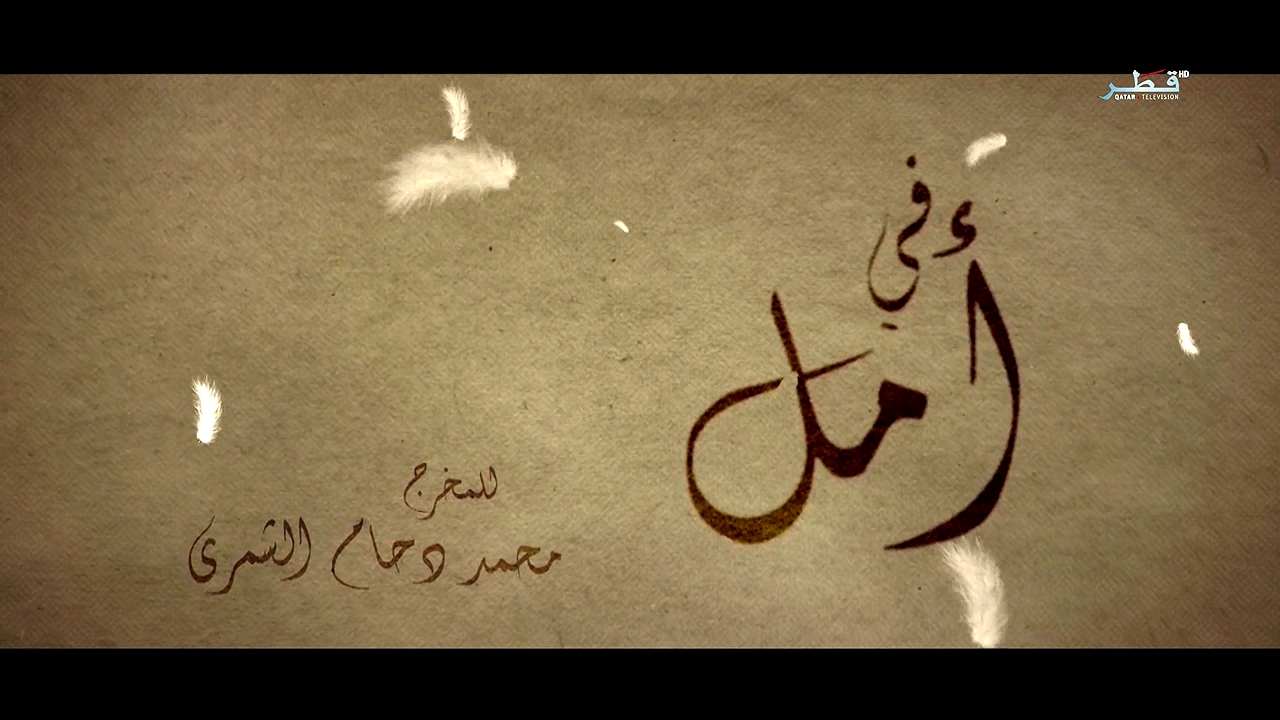 قطر HD
QATAR TELEVISION
في أمل
للمخرج
محمد دحام الشمري